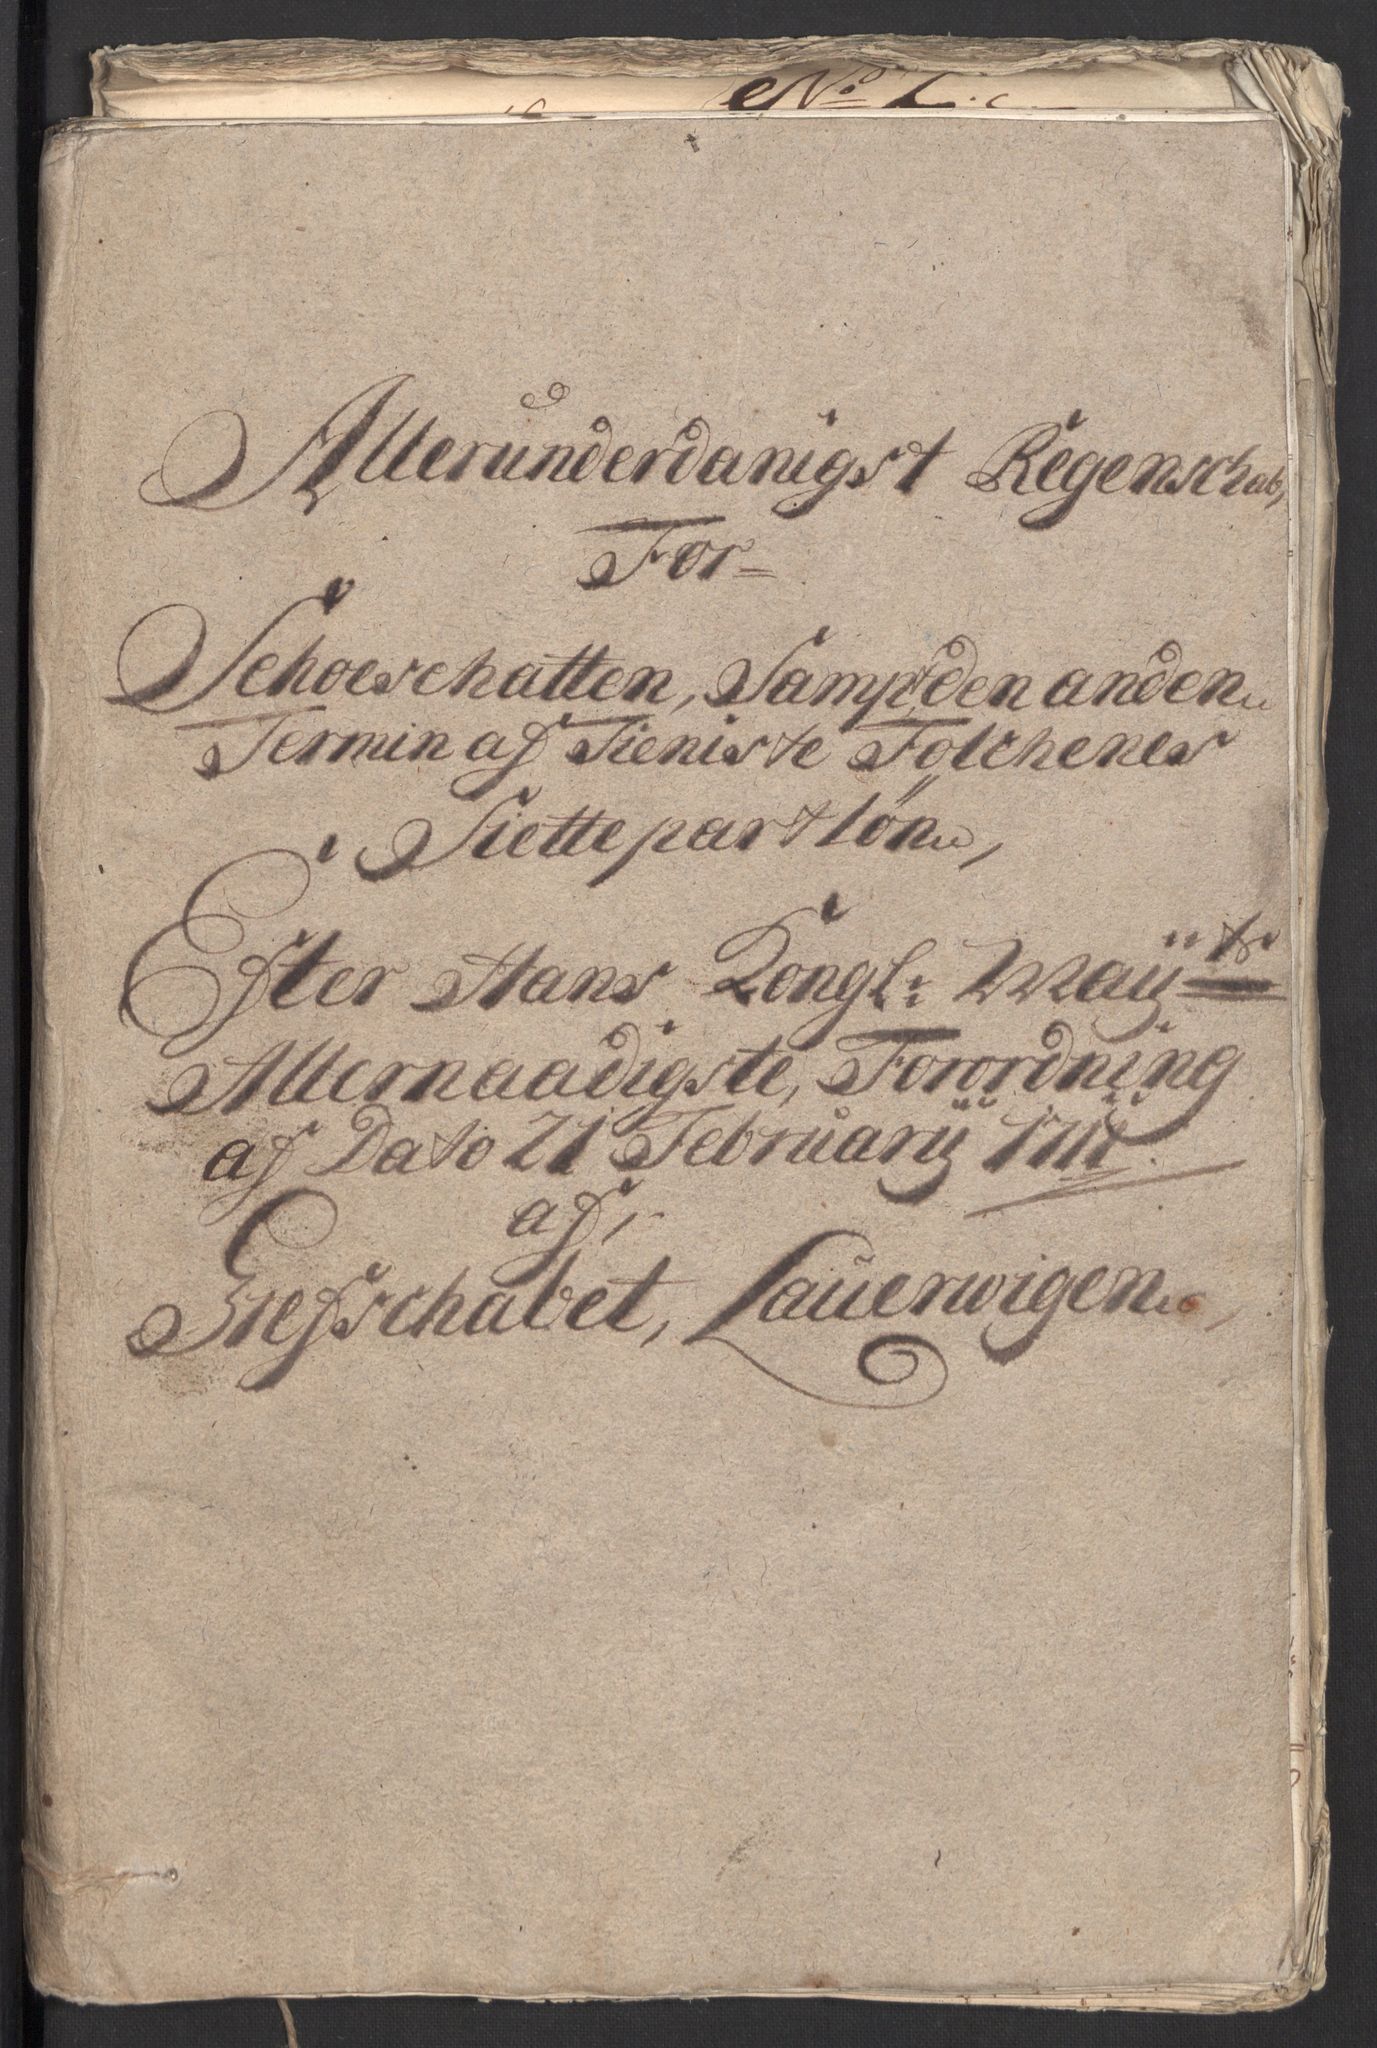 No 1.
Allerunderdanigst Regenschab,
For
Schoeschatten, Sampt den anden
Termin af Tieniste Folchenes
Siette part lön,
Efter Hans Kongl: Maÿts
Allernaadigste, Forordning
af Dato 21 Februarÿ 1711.
af,
Grefschabet, Lauerwigen,